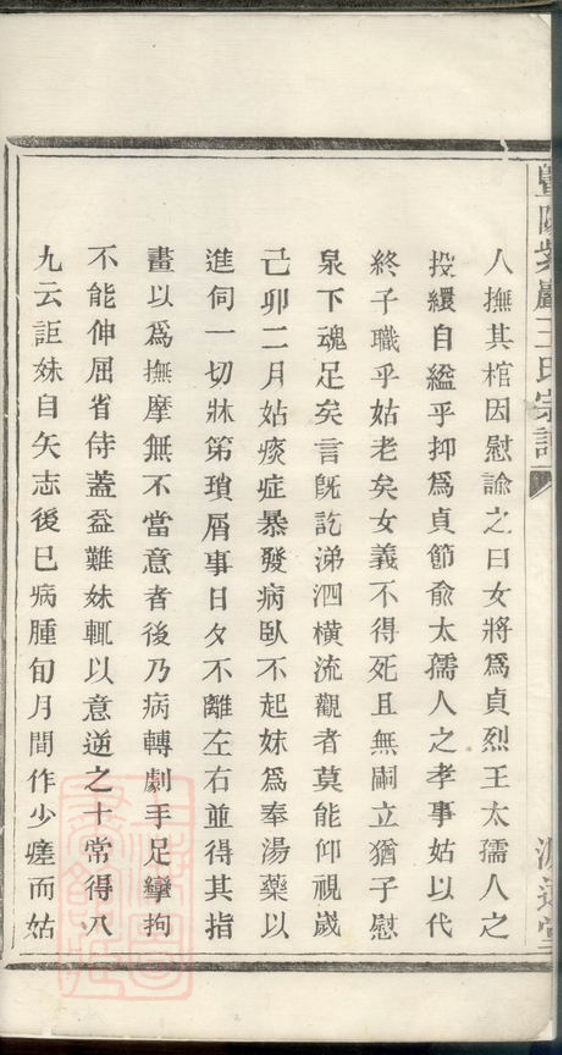 暨陽紫巖王氏宗譜
人撫其棺因慰諭之曰女將爲貞烈王太孺人之
投繯自縊乎抑爲貞節俞太孺人之孝事姑以代
終子職乎姑老矣女義不得死且無嗣立猶子慰
泉下魂足矣言旣訖涕泗橫流觀者莫能仰視歲
己卯二月姑痰症暴發病臥不起妹爲奉湯藥以
進伺一切牀笫瑣屑事日夕不離左右並得其指
畫以爲撫摩無不當意者後乃病轉劇手足攣拘
不能伸屈省侍蓋益難妹輒以意逆之十常得八
九云詎妹自矢志後已病腫旬月間作少瘥而姑